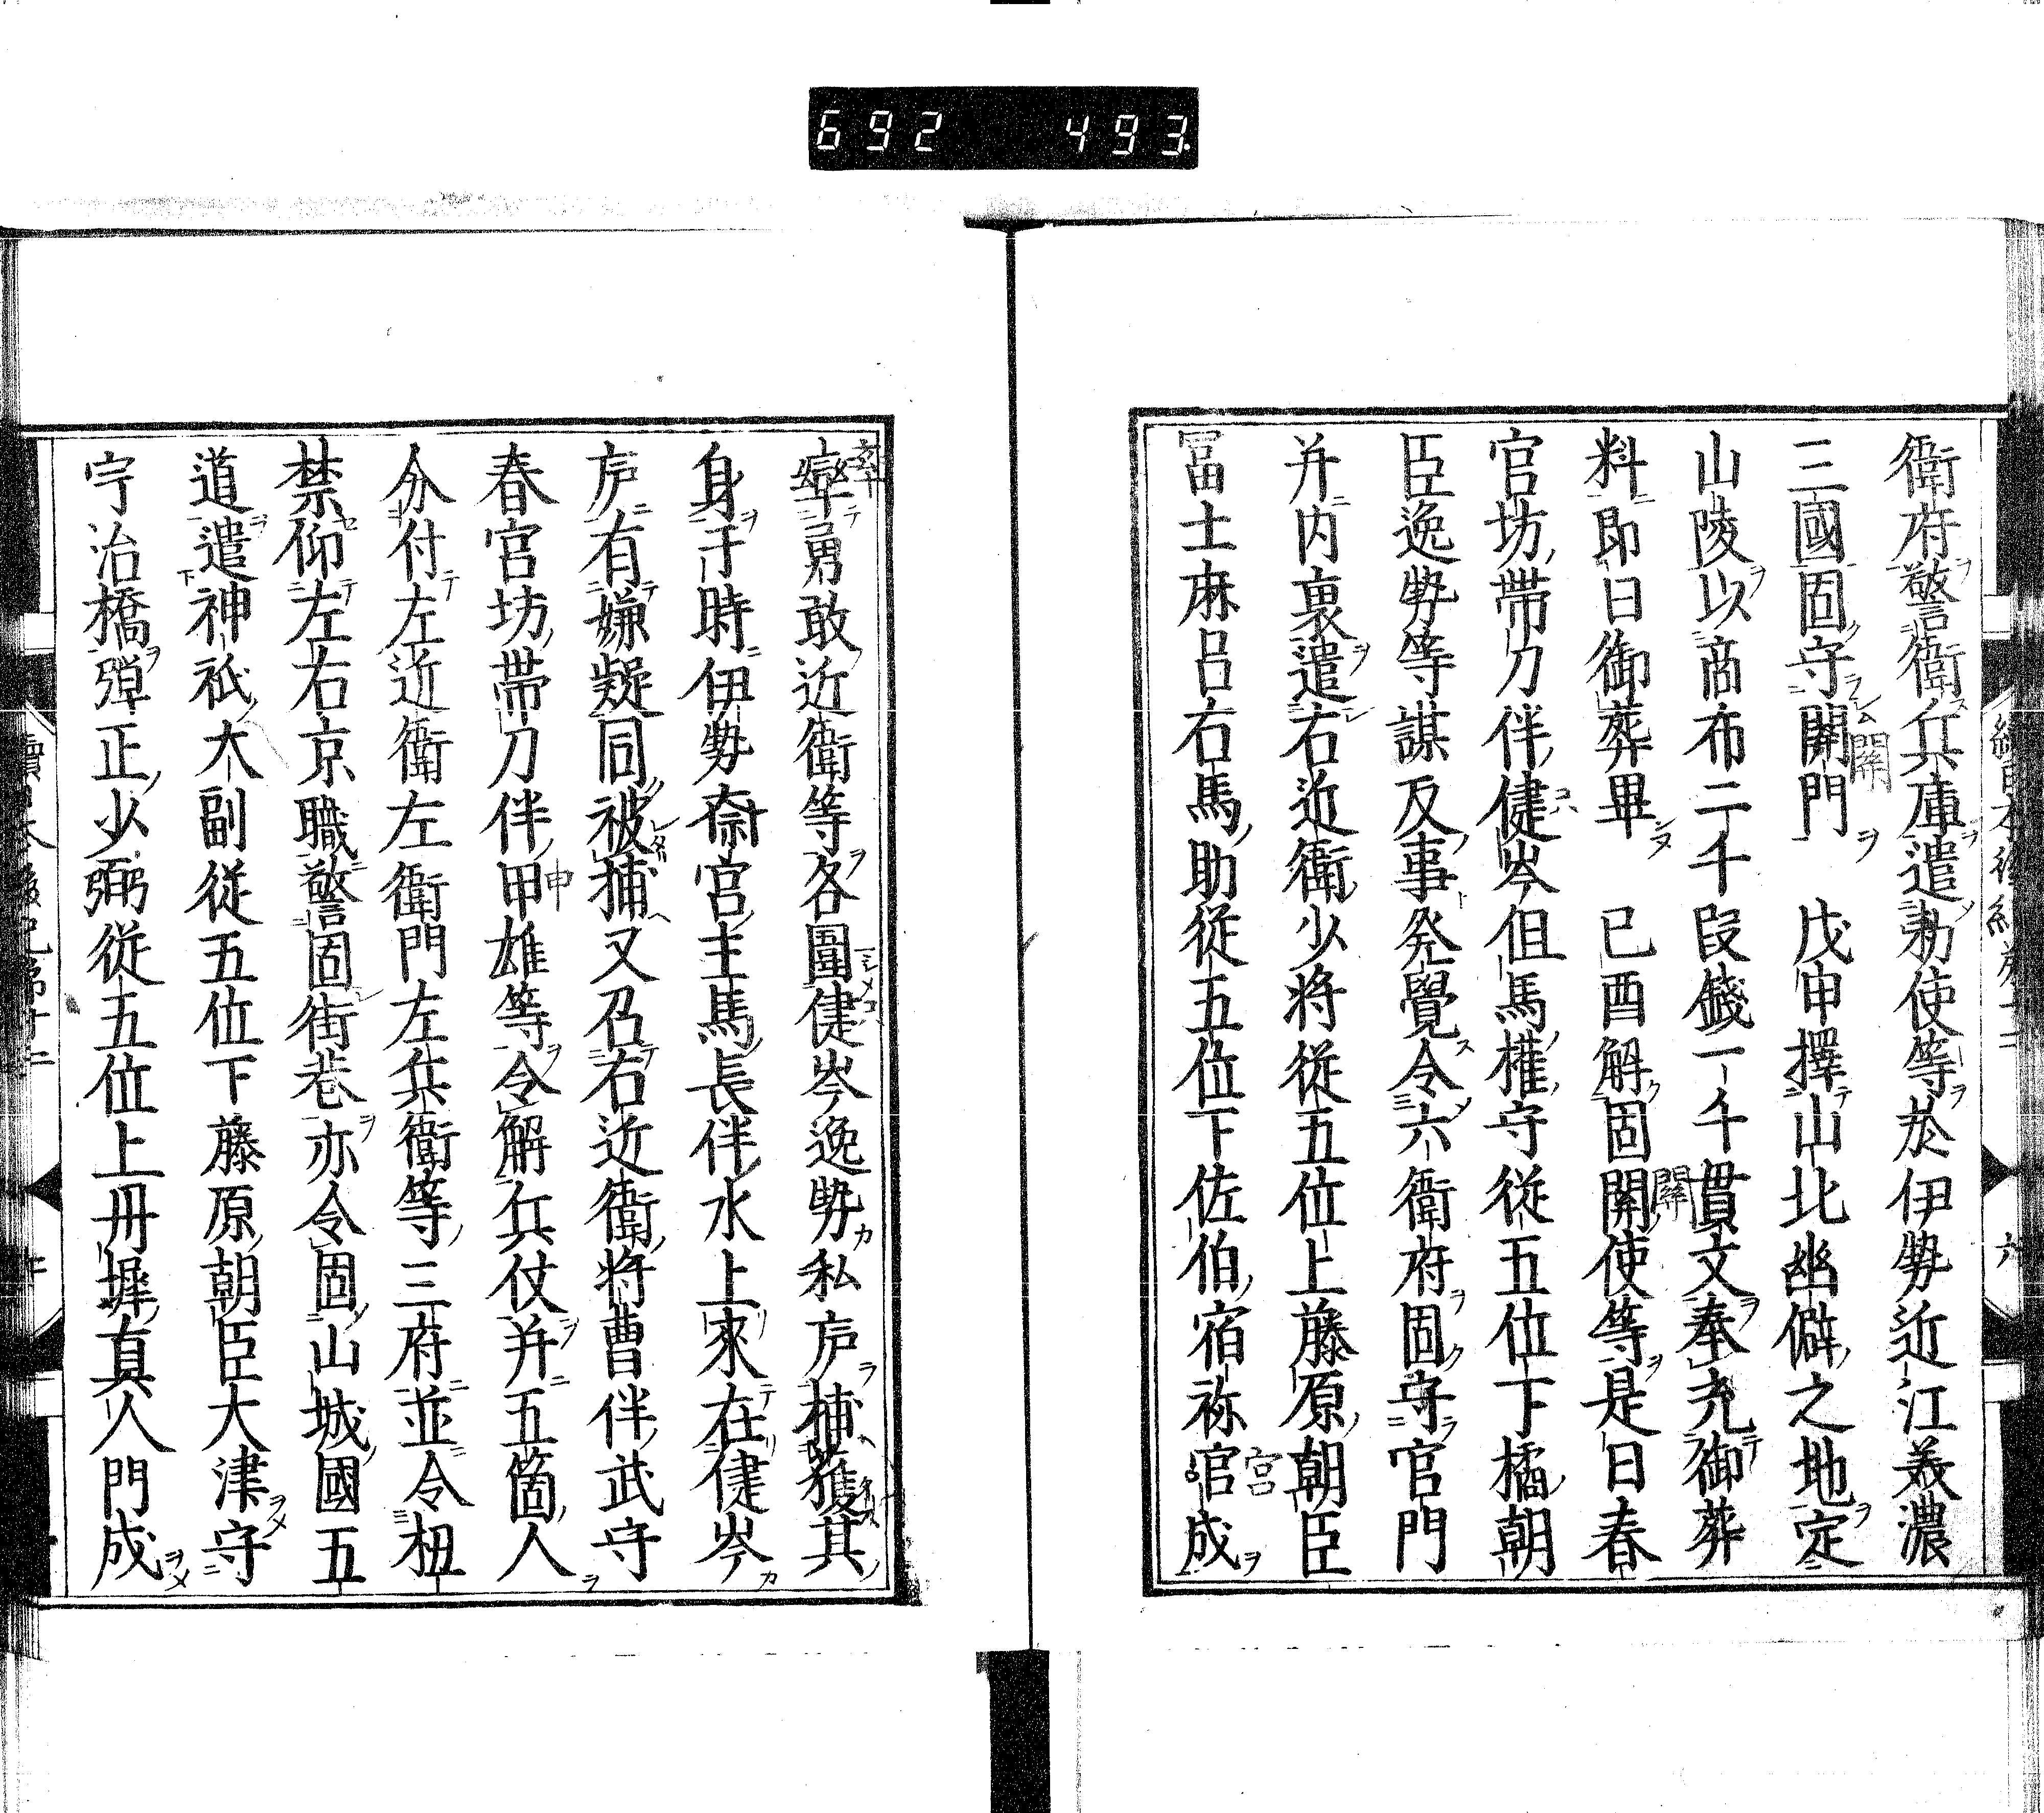 692 493
衞府警衞兵庫遣勅使等於伊勢近江義濃
三國固守開門 戊申擇山北幽僻之地定
山陵以商布二千段錢一千貫文奉充御葬
料即日御葬畢 已酉解固開使等是日春
官坊帶刀伴健岑但馬權守從五位下橘朝
臣逸勢等謀反事発覺令六衞府固守宮門
并内裏遣右近衞少將從五位上藤原朝臣
冨士麻呂右馬助從五位下佐伯宿祢官成
率勇敢近衞等各圍健岑逸勢私庐捕獲其
身于時伊勢斎宮主馬長伴水上來在健岑
庐有嫌疑同被捕又召右近衞將曹伴武守
春宮坊帶刀伴甲雄等令解兵仗并五箇人
分付左近衞左衞門左兵衞等三府並令杻
禁仰左右京職警固街巷亦令固山城國五
道遣神祇大副從五位下藤原朝臣大津守
宇治橋彈正少弼從五位上丹墀真人門成